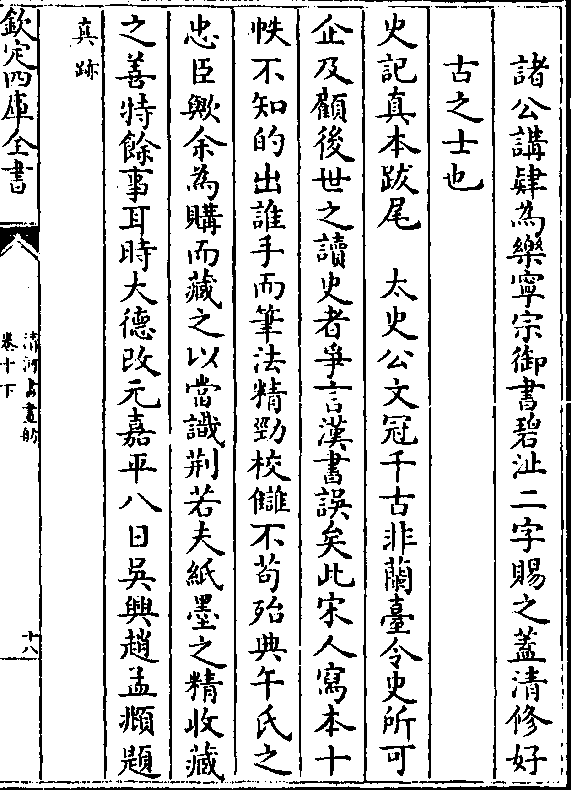 諸公講肄為樂寧宗御書碧沚二字賜之蓋清修好
古之士也
史記真本跋尾　太史公文冠千古非蘭臺令史所可
企及顧後世之讀史者爭言漢書誤矣此宋人寫本十
帙不知的出誰手而筆法精勁校讎不茍殆典午氏之
忠臣歟余為購而藏之以當識荆若夫紙墨之精收藏
之善特餘事耳時大德改元嘉平八日吳興趙孟頫題
真跡
欽定四庫全書
清河書畫舫
卷十下
十八